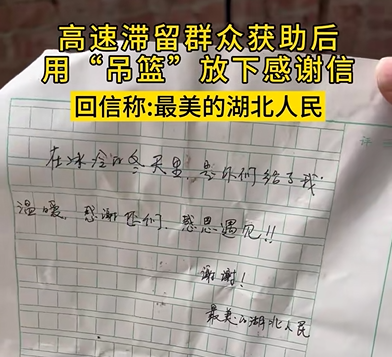 高速滞留群众获助后
用“吊篮”放下感谢信
回信称:最美的湖北人民
在冰冷的冬天里,是你们给了我
温暖,感谢你们,感恩遇见!!
谢谢!
最美的湖北人民